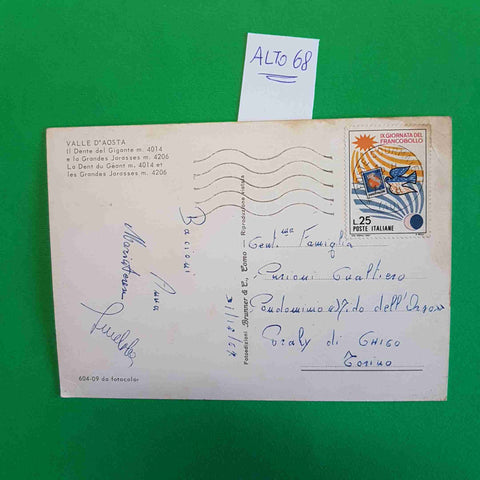 ALTO 68
VALLE D'AOSTA
Il Dente del Gigante m. 4014
e la Grandes Jorasses m. 4206
La Dent du Géant m. 4014 et
les Grandes Jorasses m. 4206
IX GIORNATA DEL
FRANCOBOLLO
L.25
POSTE ITALIANE
Bacioni
Anna
Mariateresa
604-09 da fotocolor
Fotoedizioni Brunner & C., Como Riproduzione vietata
Gent.ma Famiglia
Gualtiero
Condominio Nido dell'Orso
di
Torino